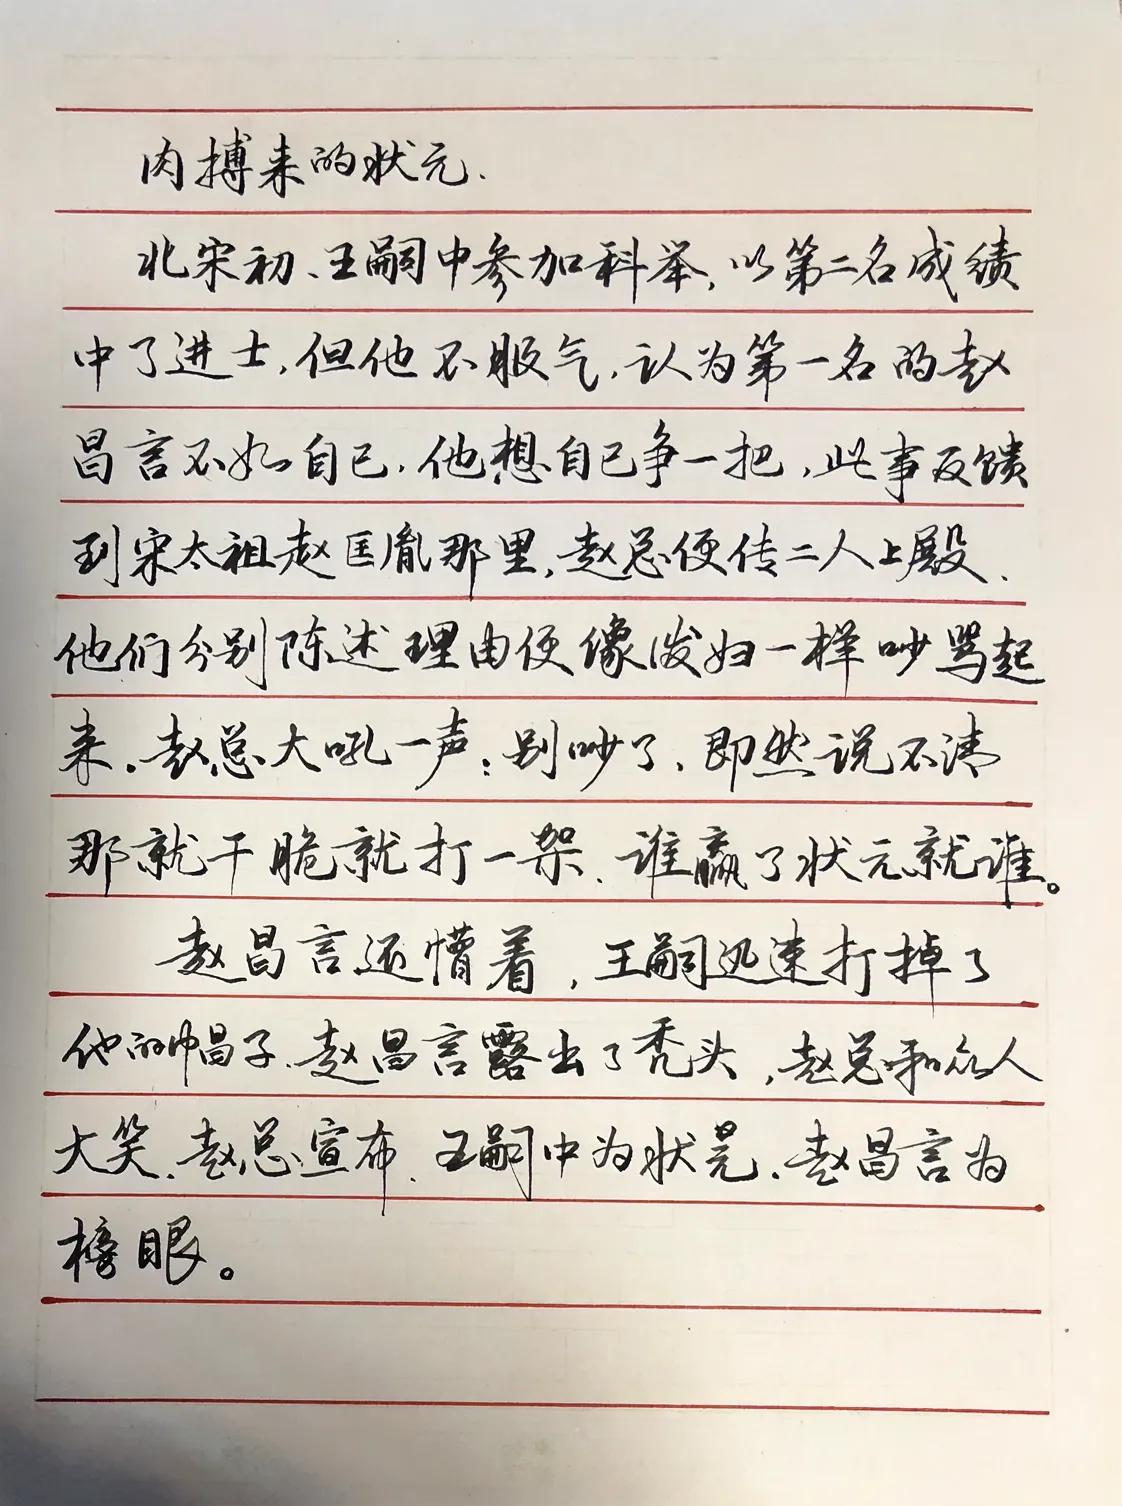 肉搏来的状元.
北宋初、王嗣中参加科举,以第二名成绩
中了进士,但他不服气,认为第一名的赵
昌言不如自己,他想自己争一把,此事反馈
到宋太祖赵匡胤那里,赵总便传二人上殿、
他们分别陈述理由便像泼妇一样吵骂起
来。赵总大吼一声:别吵了、即然说不清
那就干脆就打一架、谁赢了状元就谁。
赵昌言还懵着,王嗣迅速打掉了
他的帽子、赵昌言露出了秃头,赵总和众人
大笑、赵总宣布、王嗣中为状元、赵昌言为
榜眼。